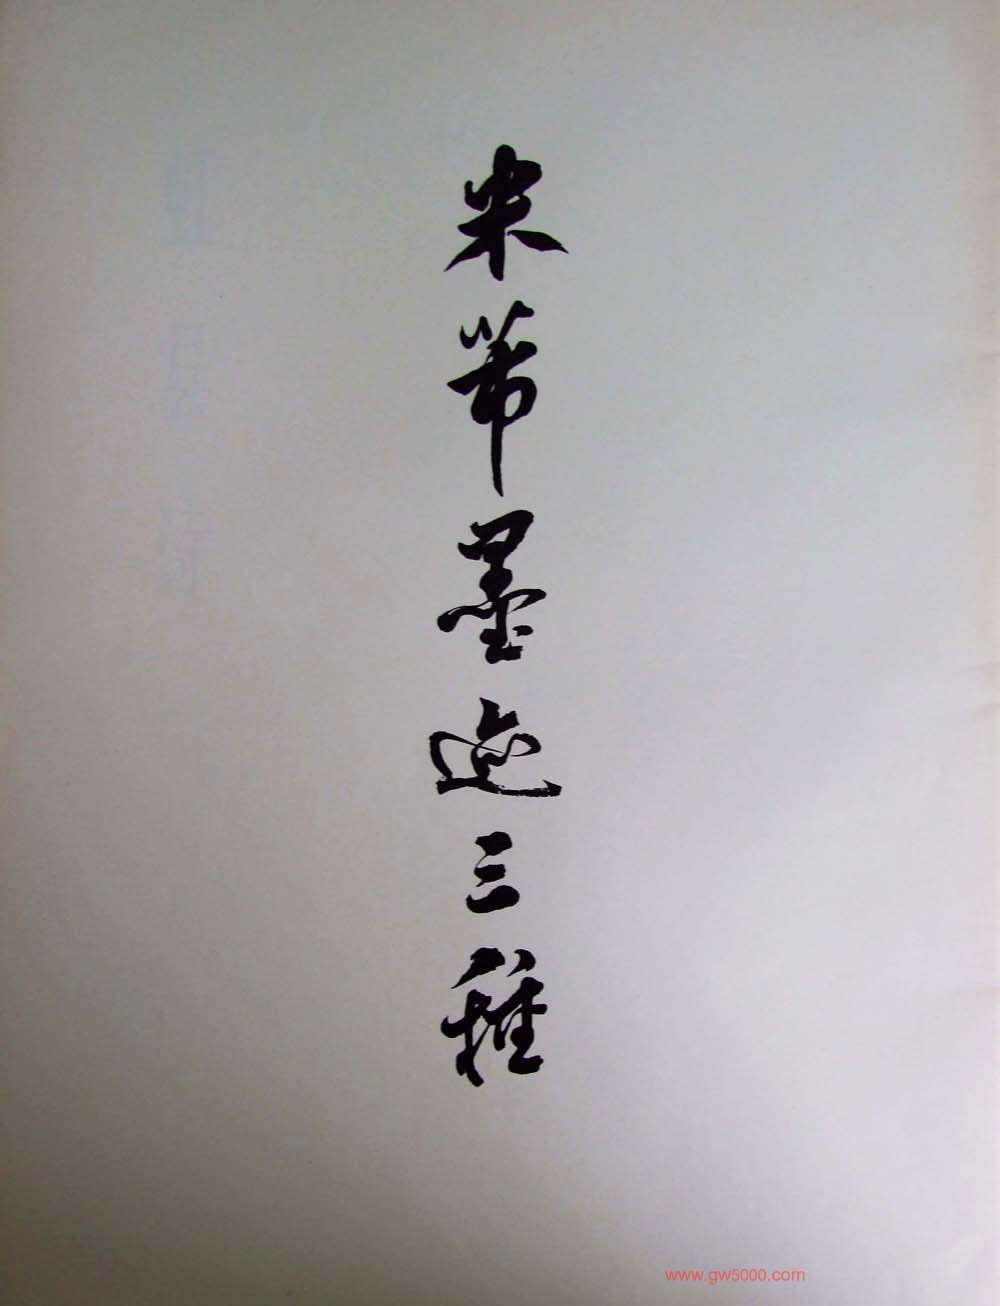 米芾墨迹三種
www.gw5000.com